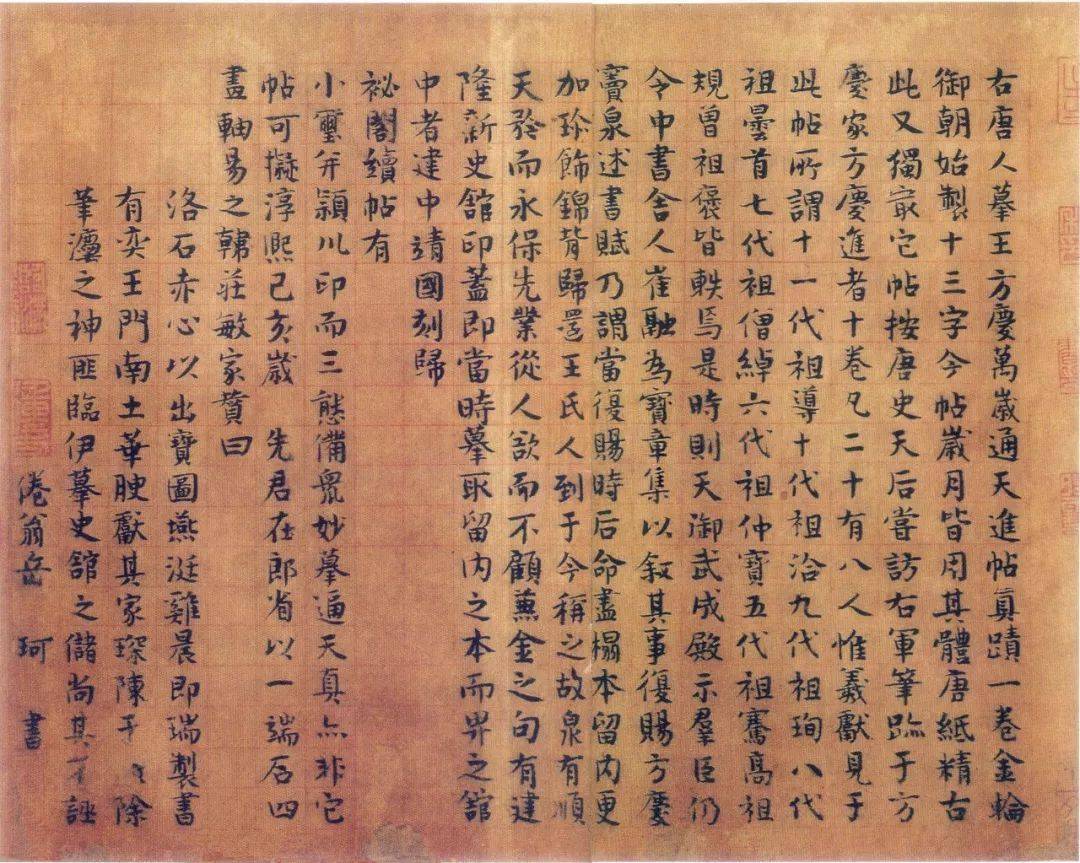 右唐人摹王方慶萬歲通天進帖真蹟一卷金輪
御朝始製十三字今帖歲月皆用其體唐紙精古
此又獨冣它帖按唐史天后嘗訪右軍筆跡于方
慶家方慶進者十卷凡二十有八人惟羲獻見于
此帖所謂十一代祖導十代祖洽九代祖珣八代
祖曇首七代祖僧綽六代祖仲寶五代祖騫高祖
規曾祖褒皆軼焉是時則天御武成殿示羣臣仍
令中書舍人崔融為寶章集以叙其事復賜方慶
竇泉述書賦乃謂當復賜時后命盡榻本留內更
加珍飾錦背歸還王氏人到于今稱之故泉有順
天矜而永保先業從人欲而不顧兼金之句有建
隆新史館印蓋即當時摹取留內之本而畀之館
中者建中靖國刻歸
祕閣續帖有
小璽并潁川印而三態備眾妙摹逼天真亦非它
帖可擬淳熙己亥歲　先君在郎省以一端石四
畫軸易之韓莊敏家贊曰
洛石赤心以出寶圖燕涎雞晨即瑞製書
有奕王門南土華腴獻其家琛陳于　除
筆瀍之神匪臨伊摹史館之儲尚其　誣
倦翁岳　珂　書